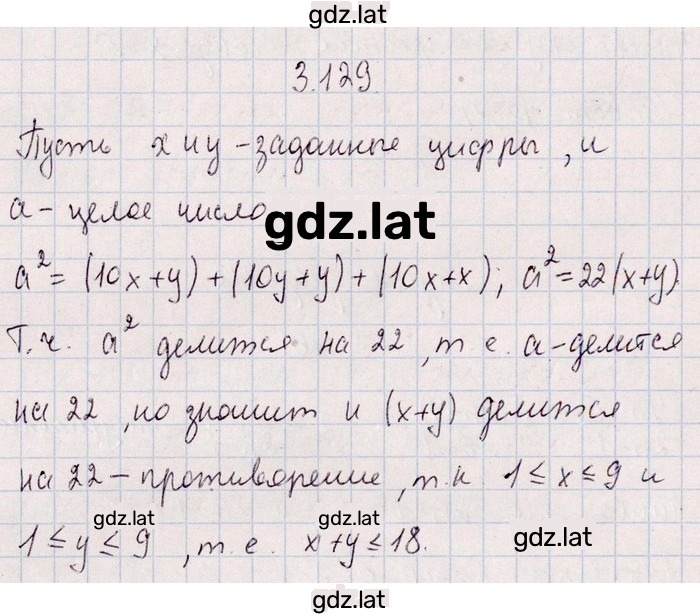 gdz.lat
3.129
Пусть x и y - заданные цифры, и
a - целое число
gdz.lat
a² = (10x+y) + (10y+y) + (10x+x); a² = 22(x+y).
Т.ч. a² делится на 22, т е. a - делится
на 22, но значит и (x+y) делится
на 22 - противорение, т.к 1 ≤ x ≤ 9 и
gdz.lat gdz.lat
1 ≤ y ≤ 9, т. е. x+y ≤ 18.
gdz.lat
gdz.lat